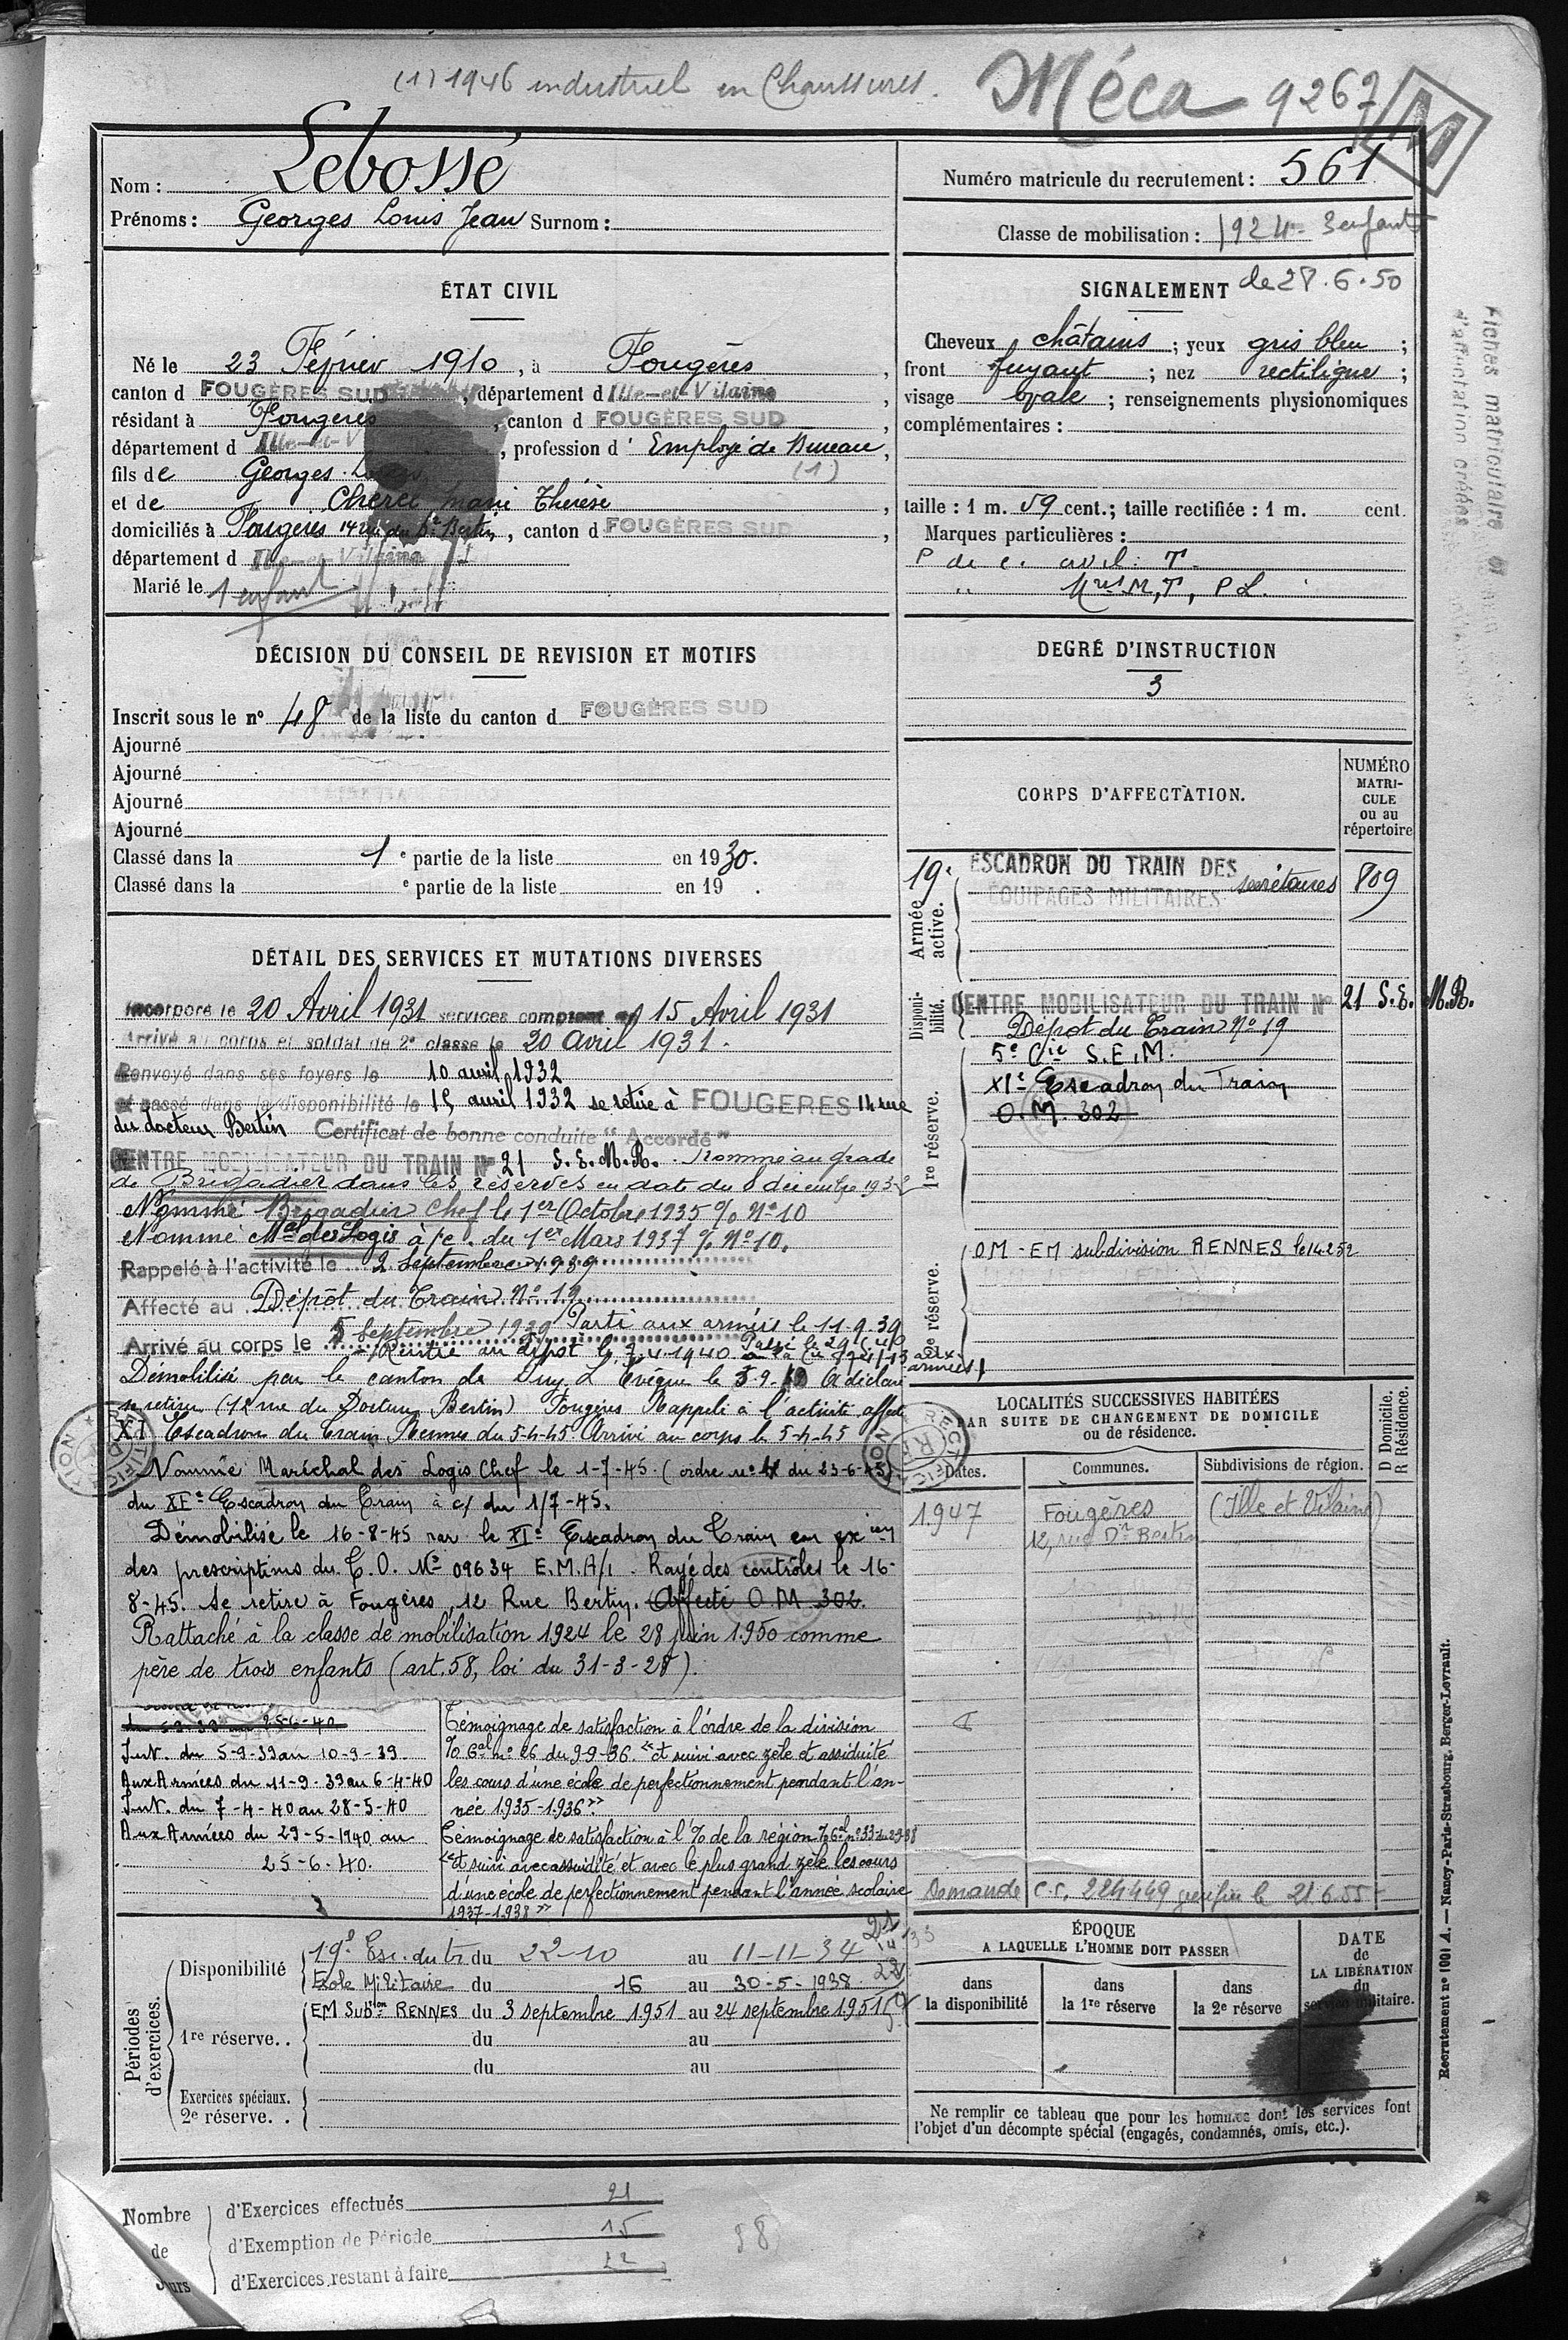 (1) 1946 industriel en Chaussures.
Méca 9267
M
Nom : Lebossé
Prénoms : Georges Louis Jean Surnom :
Numéro matricule du recrutement : 561
Classe de mobilisation : 1924 - 3 enfants
de 28.6.50
ÉTAT CIVIL
Né le 23 Février 1910, à Fougères,
canton d FOUGÈRES SUD, département d Ille-et-Vilaine,
résidant à Fougères, canton d FOUGÈRES SUD,
département d Ille-et-V, profession d' Employé de Bureau,
(1)
fils de Georges
et de Marie Thérèse,
domiciliés à Fougères 14 rue du Dr Bertin, canton d FOUGÈRES SUD,
département d Ille-et-Vilaine
Marié le 1 enfant
SIGNALEMENT
Cheveux châtains ; yeux gris bleu ;
front fuyant ; nez rectiligne ;
visage ovale ; renseignements physionomiques
complémentaires :
taille : 1 m. 59 cent.; taille rectifiée : 1 m. cent.
Marques particulières :
P de c. civil : T.
" Mres M, T, P L.
DEGRÉ D'INSTRUCTION
3
Fiches matriculaire et
d'affectation créées
DÉCISION DU CONSEIL DE REVISION ET MOTIFS
Inscrit sous le n° 48 de la liste du canton d FOUGÈRES SUD
Ajourné
Ajourné
Ajourné
Ajourné
Classé dans la 1 e partie de la liste en 1930.
Classé dans la e partie de la liste en 19 .
CORPS D'AFFECTATION.
NUMÉRO
MATRI-
CULE
ou au
répertoire
Armée active.
19e ESCADRON DU TRAIN DES
ÉQUIPAGES MILITAIRES secrétaires 809
Disponi-
bilité.
CENTRE MOBILISATEUR DU TRAIN N° 21 S.E.M.R.
Dépôt du Train N° 19
1re réserve.
5e Cie S.E.M.
XIe Escadron du Train
O.M. 302
2e réserve.
O.M - EM subdivision RENNES le 14.2.52
DÉTAIL DES SERVICES ET MUTATIONS DIVERSES
Incorporé le 20 Avril 1931 services comptant du 15 Avril 1931
Arrivé au corps et soldat de 2e classe le 20 Avril 1931.
Renvoyé dans ses foyers le 10 avril 1932
et passé dans la disponibilité le 15 avril 1932 se retire à FOUGERES 14 rue
du docteur Bertin Certificat de bonne conduite "Accordé"
CENTRE MOBILISATEUR DU TRAIN N° 21 S.E.M.R. Nommé au grade
de Brigadier dans les réserves en date du 8 décembre 193
Nommé Brigadier Chef le 1er Octobre 1935 % N° 10
Nommé Mal des Logis à/c. du 1er Mars 1937 % N° 10.
Rappelé à l'activité le 2 Septembre 1939
Affecté au Dépôt du Train N° 19
Arrivé au corps le 5 Septembre 1939 Parti aux armées le 11.9.39
Rentré au dépôt le 7.4.1940 Passé le 29.5.40 à la Cie aux
armées
Démobilisé par le canton de Puy L'Évêque le A déclaré
se retirer (12 rue du Docteur Bertin) Fougères Rappelé à l'activité affecté
XI Escadron du Train Rennes du 5-4-45 Arrivé au corps le 5-4-45
Nommé Maréchal des Logis Chef le 1-7-45. (ordre n° du 23-6-45)
du XIe Escadron du Train à c/ du 1/7-45.
Démobilisé le 16-8-45 par le XIe Escadron du Train en exion
des prescriptions du T.O. N° 09634 E.M.A/1. Rayé des contrôles le 16-
8-45. Se retire à Fougères, 12 Rue Bertin. Affecté O.M. 302.
Rattaché à la classe de mobilisation 1924 le 28 juin 1950 comme
père de trois enfants (art. 58, loi du 31-3-28).
LOCALITÉS SUCCESSIVES HABITÉES
PAR SUITE DE CHANGEMENT DE DOMICILE
ou de résidence.
D Domicile.
R Résidence.
Dates.
Communes.
Subdivisions de région.
1947 Fougères (Ille et Vilaine)
12, rue Dr Bertin
Demande C.C. 224449 le 21.6.55
25-6-40
Int. du 5-9-39 au 10-9-39
Aux Armées du 11-9-39 au 6-4-40
Int. du 7-4-40 au 28-5-40
Aux Armées du 29-5-1940 au
25-6-40.
Témoignage de satisfaction à l'ordre de la division
% Gal n° 26 du 9-9-36. "et suivi avec zèle et assiduité
les cours d'une école de perfectionnement pendant l'an-
née 1935-1936".
Témoignage de satisfaction à l'% de la région % Gal n° 33
"et suivi avec assiduité et avec le plus grand zèle les cours
d'une école de perfectionnement pendant l'année scolaire
1937-1938"
Périodes
d'exercices.
Disponibilité
19e Esc. du tr du 22-10 au 11-11-34 21
École Militaire du 16 au 30-5-1938
1re réserve. .
EM Subion RENNES du 3 septembre 1951 au 24 septembre 1951
du au
du au
Exercices spéciaux.
2e réserve. .
ÉPOQUE
A LAQUELLE L'HOMME DOIT PASSER
dans
la disponibilité
dans
la 1re réserve
dans
la 2e réserve
DATE
de
LA LIBÉRATION
du
service militaire.
Ne remplir ce tableau que pour les hommes dont les services font
l'objet d'un décompte spécial (engagés, condamnés, omis, etc.).
Recrutement n° 1001 A. — Nancy-Paris-Strasbourg, Berger-Levrault.
Nombre
de
Jours
d'Exercices effectués 21
d'Exemption de Période 15
d'Exercices restant à faire 22